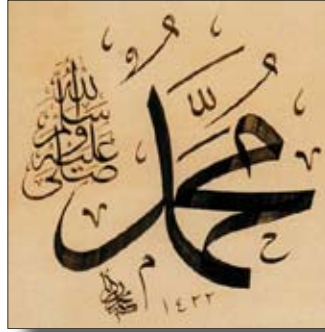 محمد
صلى الله عليه وسلم
١٤٣٢